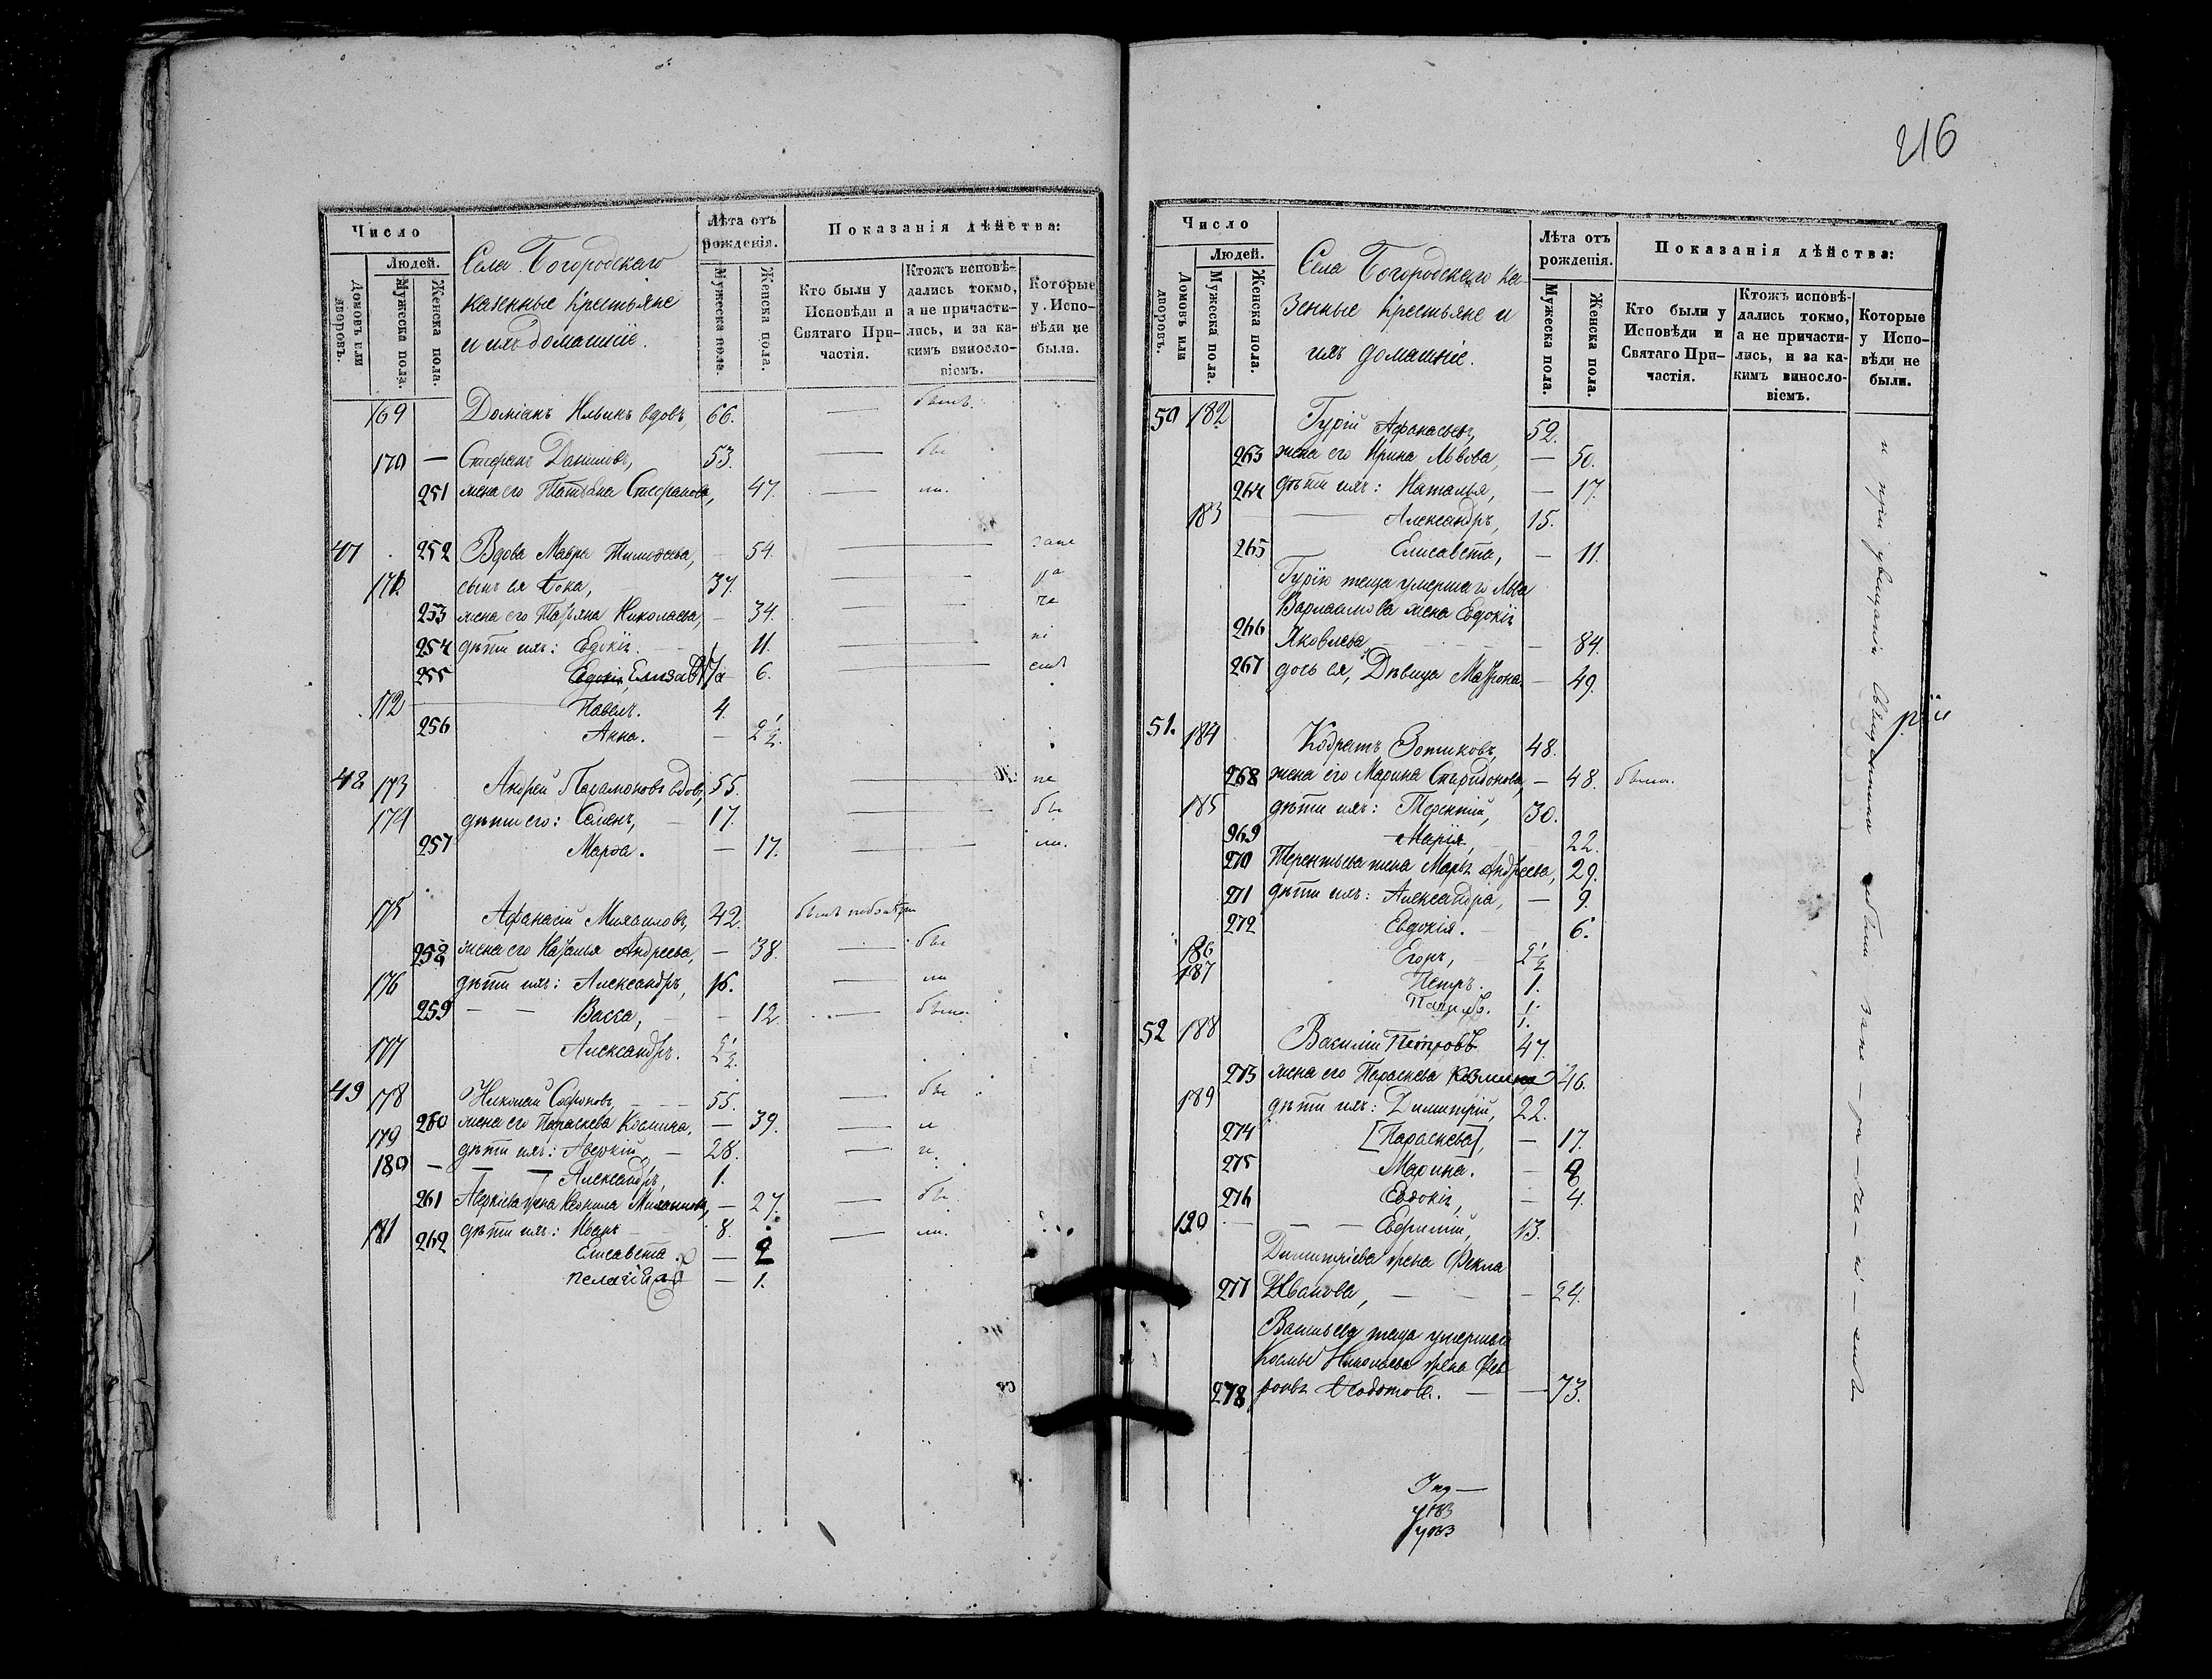 216
Число
Людей.
Домовъ или дворовъ.
Мужеска пола.
Женска пола.
Села Богородскаго
казенные крестьяне
и ихъ домашніе.
Лѣта отъ рожденія.
Мужеска пола.
Женска пола.
Показанія дѣйства:
Кто были у Исповѣди и Святаго Причастія.
Ктожъ исповѣдались токмо, а не причастились, и за какимъ винословіемъ.
Которые у Исповѣди не были.
169 Доміанъ Ильинъ вдовъ, 66. — былъ.
170 — Стефанъ Даниловъ, 53. — бы
251 жена его Татьяна Стефанова, 47. — ли.
47 252 Вдова Мавра Тимоѳеева, — 54. — — зане
171 сынъ ея Ѳока, 37. — — ра
253 жена его Татьяна Николаева, — 34. — — че
254 дѣти ихъ: Евдокія. 11. — ні
255 Евдокія, Елизавета 6. — емъ
172 Павелъ. 4.
256 Анна. — 2 1/2.
48 173 Андрей Парамоновъ вдовъ, 55. — не
174 дѣти его: Семенъ, — 17. — — бы
257 Марѳа. — 17. — — ли.
175 Афанасій Михаиловъ, 42. былъ
258 жена его Наталья Андреева, — 38. — бы
176 дѣти ихъ: Александръ, 16. — ли
259 — — Васса, — 12. — была.
177 Александръ. 2 1/2.
49 178 Николай Софоновъ, — 55. — бы
260 жена его Параскева Космина, — 39. — л
179 дѣти ихъ: Аверкій, — 28. — и.
180 — — Александръ, 1.
261 Аверкіева жена Неонила Михаилова, — 27. — бы
181 дѣти ихъ: Иванъ — 8. — ли.
262 Елисавета. — 2
Пелагія — 1.
Число
Людей.
Домовъ или дворовъ.
Мужеска пола.
Женска пола.
Села Богородскаго ка-
зенные крестьяне и
ихъ домашніе.
Лѣта отъ рожденія.
Мужеска пола.
Женска пола.
Показанія дѣйства:
Кто были у Исповѣди и Святаго Причастія.
Ктожъ исповѣдались токмо, а не причастились, и за какимъ винословіемъ.
Которые у Исповѣди не были.
50 182 Гурій Афанасьевъ, 52.
263 жена его Ирина Львова, — 50.
264 дѣти ихъ: Наталья, — 17.
183 — Александръ, 15.
265 Елисавета, — 11.
Гурію теща умершаго Льва
Варлаамова жена Евдокія
266 Яковлева — 84.
267 дочь ея, Дѣвица Матрона. — 49.
51. 184 Кодратъ Зотиковъ, 48.
268 жена его Марина Спиридонова, — 48. была.
185 дѣти ихъ: Терентій, 30.
269 Марія, 22.
270 Терентьева жена Марья Андреева, 29.
271 дѣти ихъ: Александра, — 9.
272 Евдокія. 6.
186 Егоръ, 2 1/2
187 Петръ. 1.
1.
1.
52 188 Василій Петровъ 47.
273 жена его Параскева Козмина 46.
189 дѣти ихъ: Димитрій, 22.
274 [Параскева], — 17.
275 Марина. — 8
276 Евдокія, — 4.
190 — — Евфимій, 13.
Димитріева жена Фекла
277 Иванова, — — 24.
Васильева теща умершаго
Космы Николаева жена Фев-
278 ронья Ѳедотова. — — 73.